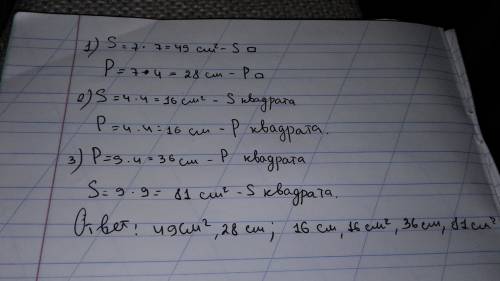 1) S = 7 · 7 = 49 см² - S □
P = 7 · 4 = 28 см - P □
2) S = 4 · 4 = 16 см² - S квадрата
P = 4 · 4 = 16 см - P квадрата.
3) P = 9 · 4 = 36 см - P квадрата
S = 9 · 9 = 81 см² - S квадрата.
Ответ: 49 см², 28 см; 16 см, 16 см², 36 см, 81 см²